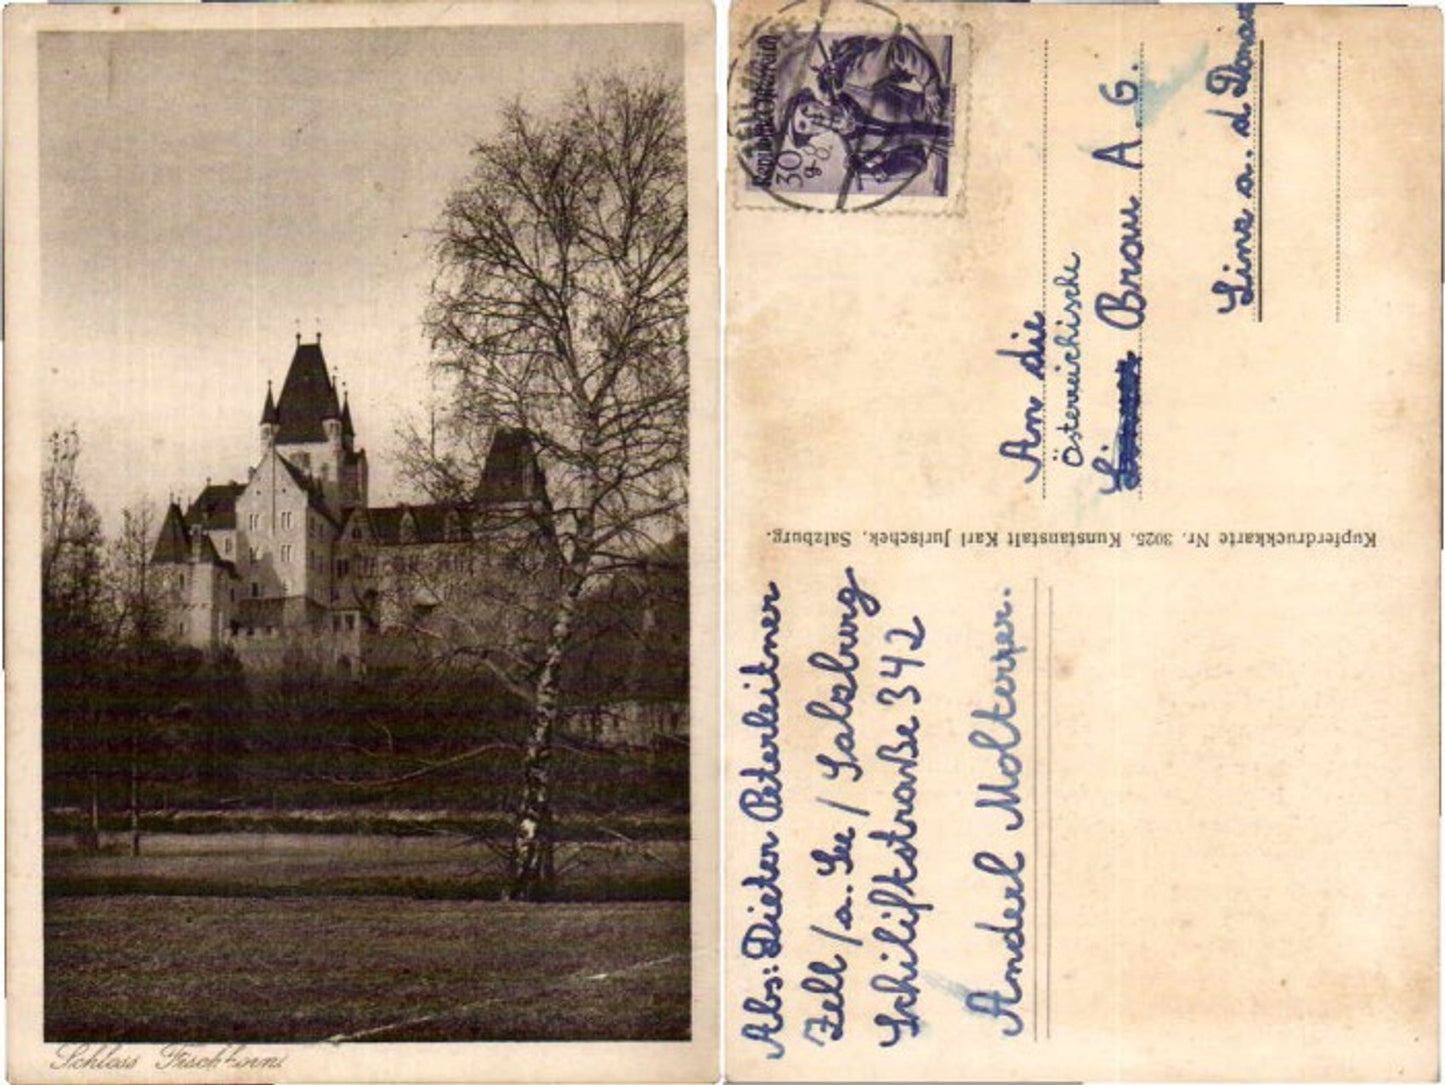 Schloss Fischhorn
Abs: Dieter Peterleitner
Zell / a. See / Salzburg
Schiliftstraße 342
Anderl Molterer.
Kupferdruckkarte Nr. 3025. Kunstanstalt Karl Jurischek, Salzburg.
30
g
An die
Österreichische
Brau A. G.
Linz a. d Donau